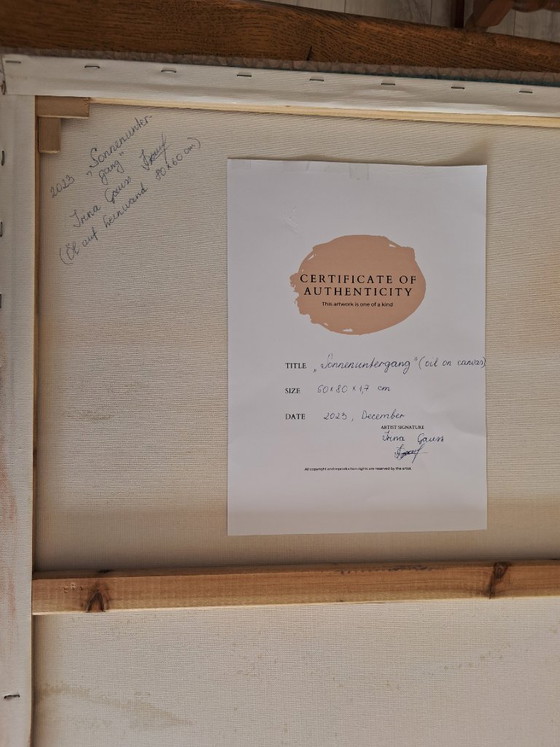 2023 „Sonnenunter-
gang“
Irina Gauss
(Öl auf Leinwand 80x60 cm)
CERTIFICATE OF
AUTHENTICITY
This artwork is one of a kind
TITLE „Sonnenuntergang“ (oil on canvas)
SIZE 60x80x1,7 cm
DATE 2023, December
ARTIST SIGNATURE
Irina Gauss
All copyright and reproduction rights are reserved by the artist.